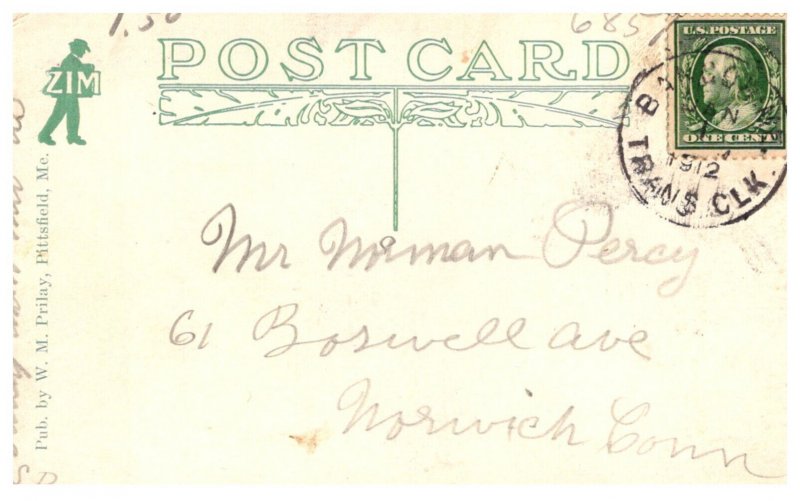 1.50
685
ZIM
POST CARD
U.S. POSTAGE
ONE CENT
1912
TRANS. CLK.
Pub. by W. M. Prilay, Pittsfield, Me.
Mr Norman Percy
61 Boswell Ave
Norwich Conn